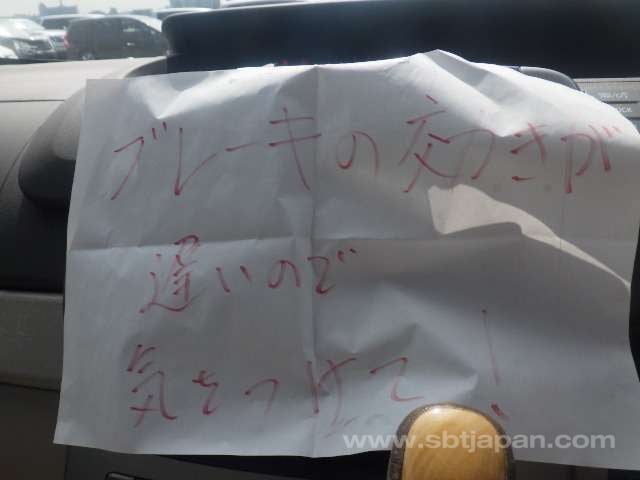 ブレーキの効きが
遅いので
気をつけて!
www.sbtjapan.com